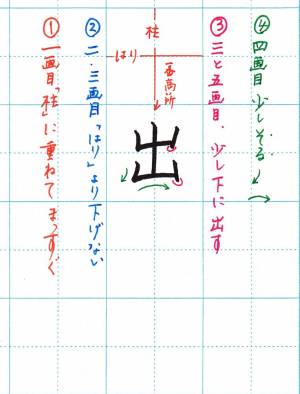 ④四画目少しそる
③三と五画目.少し下に出す
柱
はり
一番高い所
出
②二・三画目「はり」より下げない
①一画目「柱」に重ねてまっすぐ